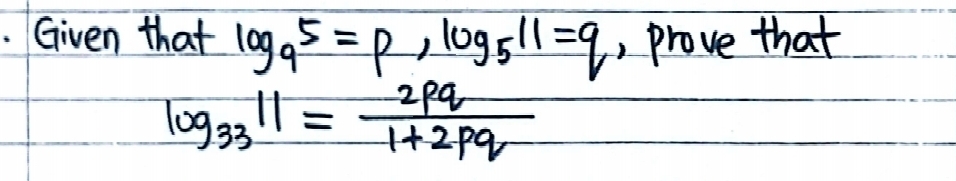 . Given that log₉5 = p, log₅11 = q, prove that
log₃₃11 = 2pq/1+2pq